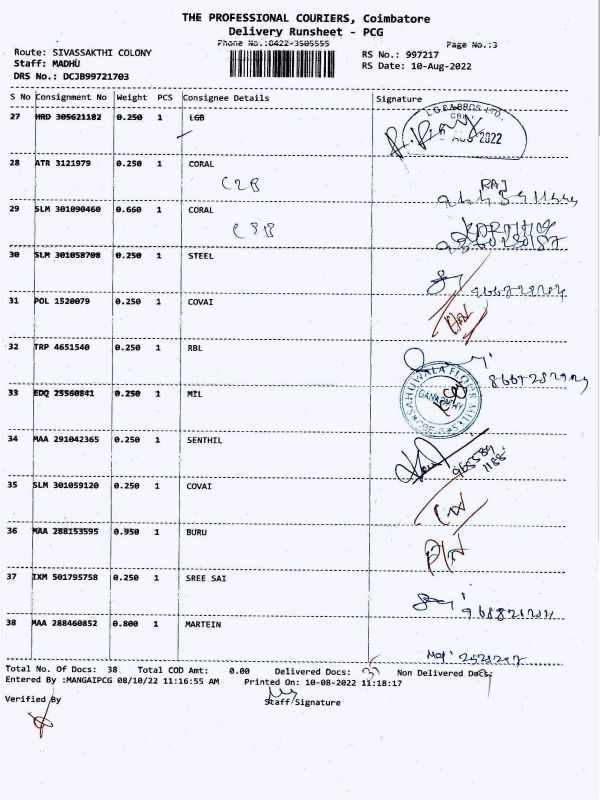 THE PROFESSIONAL COURIERS, Coimbatore
Delivery Runsheet - PCG
Phone No.:0422-3505555
Page No.:3
Route: SIVASSAKTHI COLONY
Staff: MADHU
DRS No.: DCJB99721703
RS No.: 997217
RS Date: 10-Aug-2022
S No Consignment No Weight PCS Consignee Details Signature
27 HRD 305621182 0.250 1 LGB
L.G.B & BROS LTD.
AUG 2022
28 ATR 3121979 0.250 1 CORAL
C2B
RAJ
29 SLM 301090460 0.660 1 CORAL
C3B
30 SLM 301058708 0.250 1 STEEL
31 POL 1520079 0.250 1 COVAI
32 TRP 4651540 0.250 1 RBL
33 EDQ 25560841 0.250 1 MIL
SAHUWALA FLOUR MILLS
34 MAA 291042365 0.250 1 SENTHIL
35 SLM 301059120 0.250 1 COVAI
36 MAA 288153595 0.950 1 BURU
37 IXM 501795758 0.250 1 SREE SAI
38 MAA 288460852 0.800 1 MARTEIN
Total No. Of Docs: 38 Total COD Amt: 0.00 Delivered Docs: Non Delivered Docs:
Entered By :MANGAIPCG 08/10/22 11:16:55 AM Printed On: 10-08-2022 11:18:17
Verified By
Staff/Signature